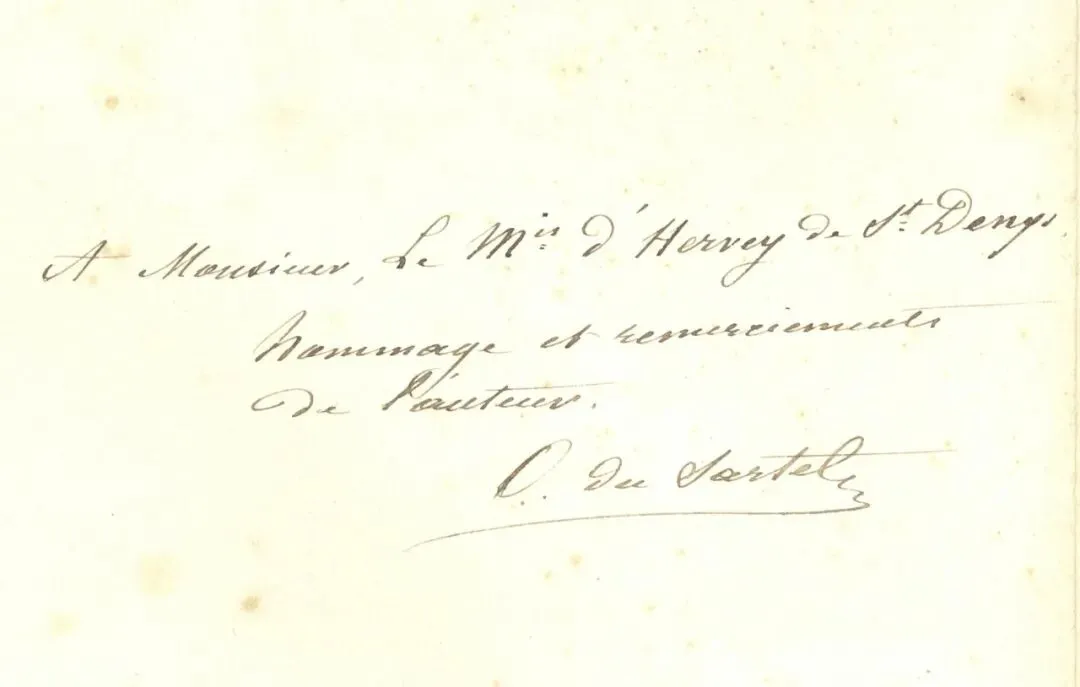 A Monsieur, Le Mis d'Hervey de St Denys.
hommage et remerciements
de l'auteur.
O. du Sartel